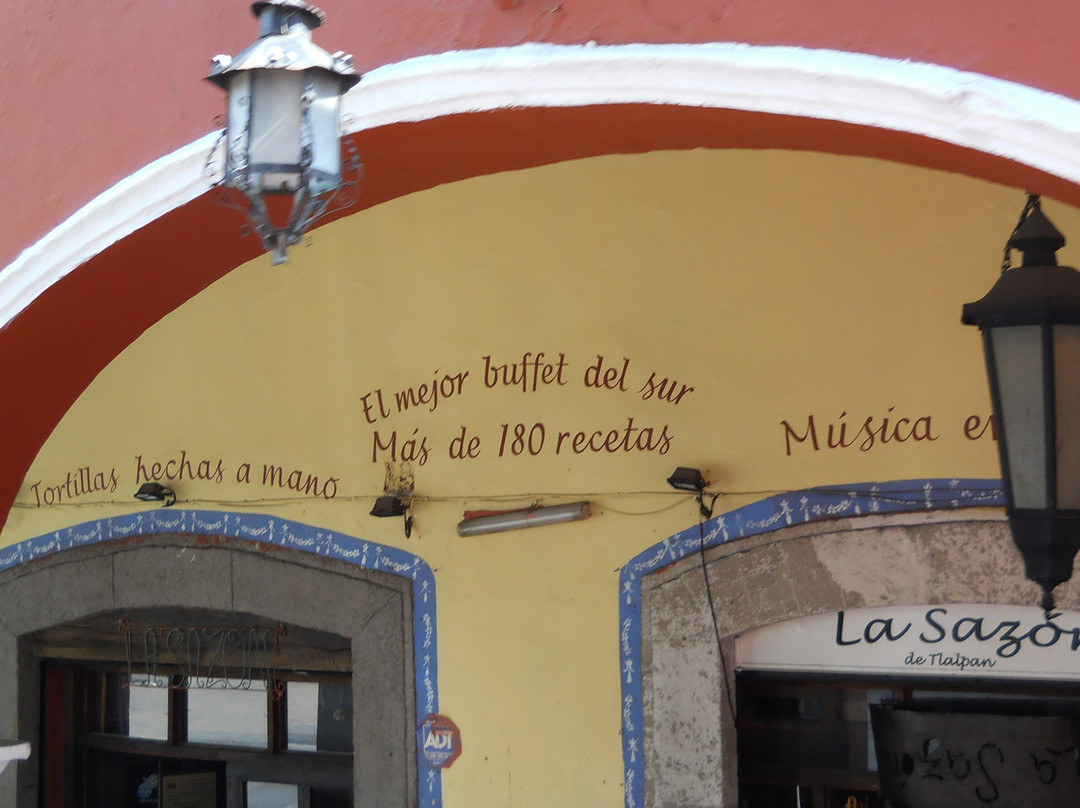 El mejor buffet del sur
Más de 180 recetas
Tortillas hechas a mano
Música en
LA SAZON
La Sazón
de Tlalpan
ADT